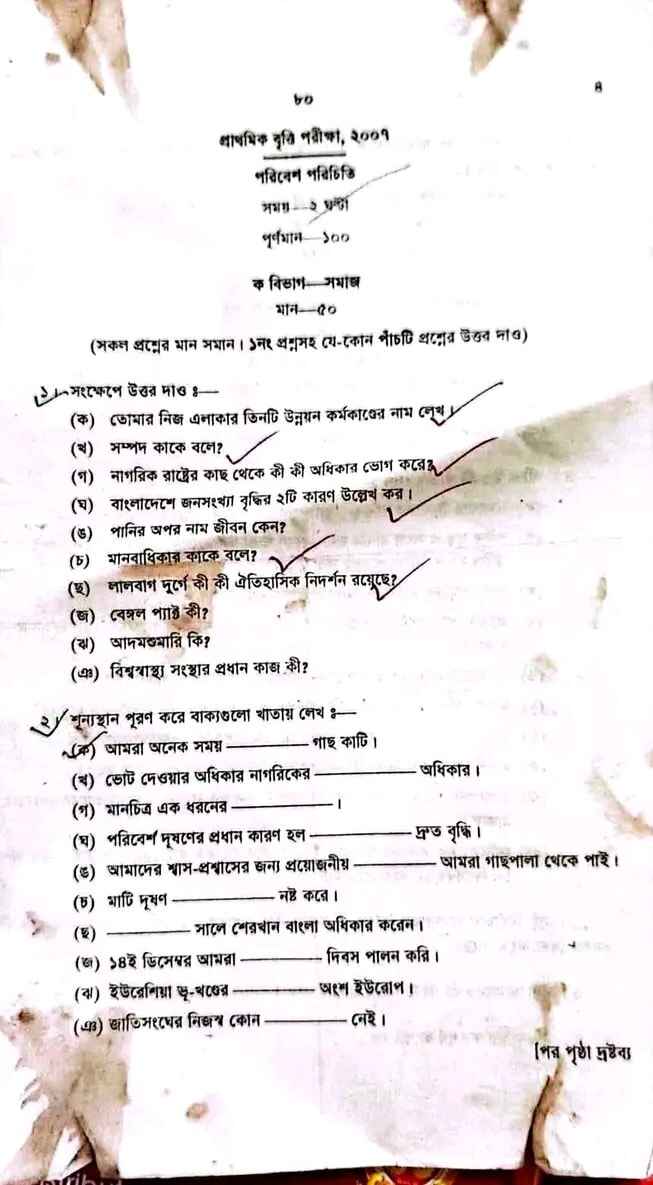 ৪
৮০
প্রাথমিক বৃত্তি পরীক্ষা, ২০০৭
পরিবেশ পরিচিতি
সময়—২ ঘণ্টা
পূর্ণমান—১০০
ক বিভাগ—সমাজ
মান—৫০
(সকল প্রশ্নের মান সমান। ১নং প্রশ্নসহ যে-কোন পাঁচটি প্রশ্নের উত্তর দাও)
১। সংক্ষেপে উত্তর দাও ঃ—
(ক) তোমার নিজ এলাকার তিনটি উন্নয়ন কর্মকাণ্ডের নাম লেখ।
(খ) সম্পদ কাকে বলে?
(গ) নাগরিক রাষ্ট্রের কাছ থেকে কী কী অধিকার ভোগ করে?
(ঘ) বাংলাদেশে জনসংখ্যা বৃদ্ধির ২টি কারণ উল্লেখ কর।
(ঙ) পানির অপর নাম জীবন কেন?
(চ) মানবাধিকার কাকে বলে?
(ছ) লালবাগ দুর্গে কী কী ঐতিহাসিক নিদর্শন রয়েছে?
(জ) বেঙ্গল প্যাক্ট কী?
(ঝ) আদমশুমারি কি?
(ঞ) বিশ্বস্বাস্থ্য সংস্থার প্রধান কাজ কী?
২। শূন্যস্থান পূরণ করে বাক্যগুলো খাতায় লেখ ঃ—
(ক) আমরা অনেক সময় ———— গাছ কাটি।
(খ) ভোট দেওয়ার অধিকার নাগরিকের ———— অধিকার।
(গ) মানচিত্র এক ধরনের ————।
(ঘ) পরিবেশ দূষণের প্রধান কারণ হল ———— দ্রুত বৃদ্ধি।
(ঙ) আমাদের শ্বাস-প্রশ্বাসের জন্য প্রয়োজনীয় ———— আমরা গাছপালা থেকে পাই।
(চ) মাটি দূষণ ———— নষ্ট করে।
(ছ) ———— সালে শেরখান বাংলা অধিকার করেন।
(জ) ১৪ই ডিসেম্বর আমরা ———— দিবস পালন করি।
(ঝ) ইউরেশিয়া ভূ-খণ্ডের ———— অংশ ইউরোপ।
(ঞ) জাতিসংঘের নিজস্ব কোন ———— নেই।
[পর পৃষ্ঠা দ্রষ্টব্য